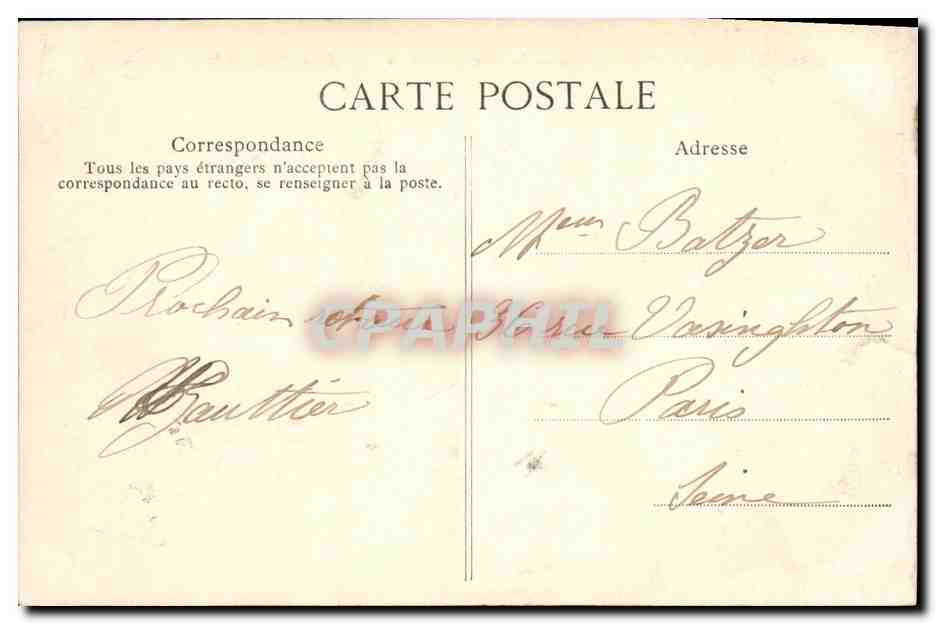 CARTE POSTALE
Correspondance
Tous les pays étrangers n'acceptent pas la
correspondance au recto, se renseigner à la poste.
Prochain retour
Gauthier
Adresse
Batzer
36 rue Vasinghton
Paris
Seine
CPAPHIL